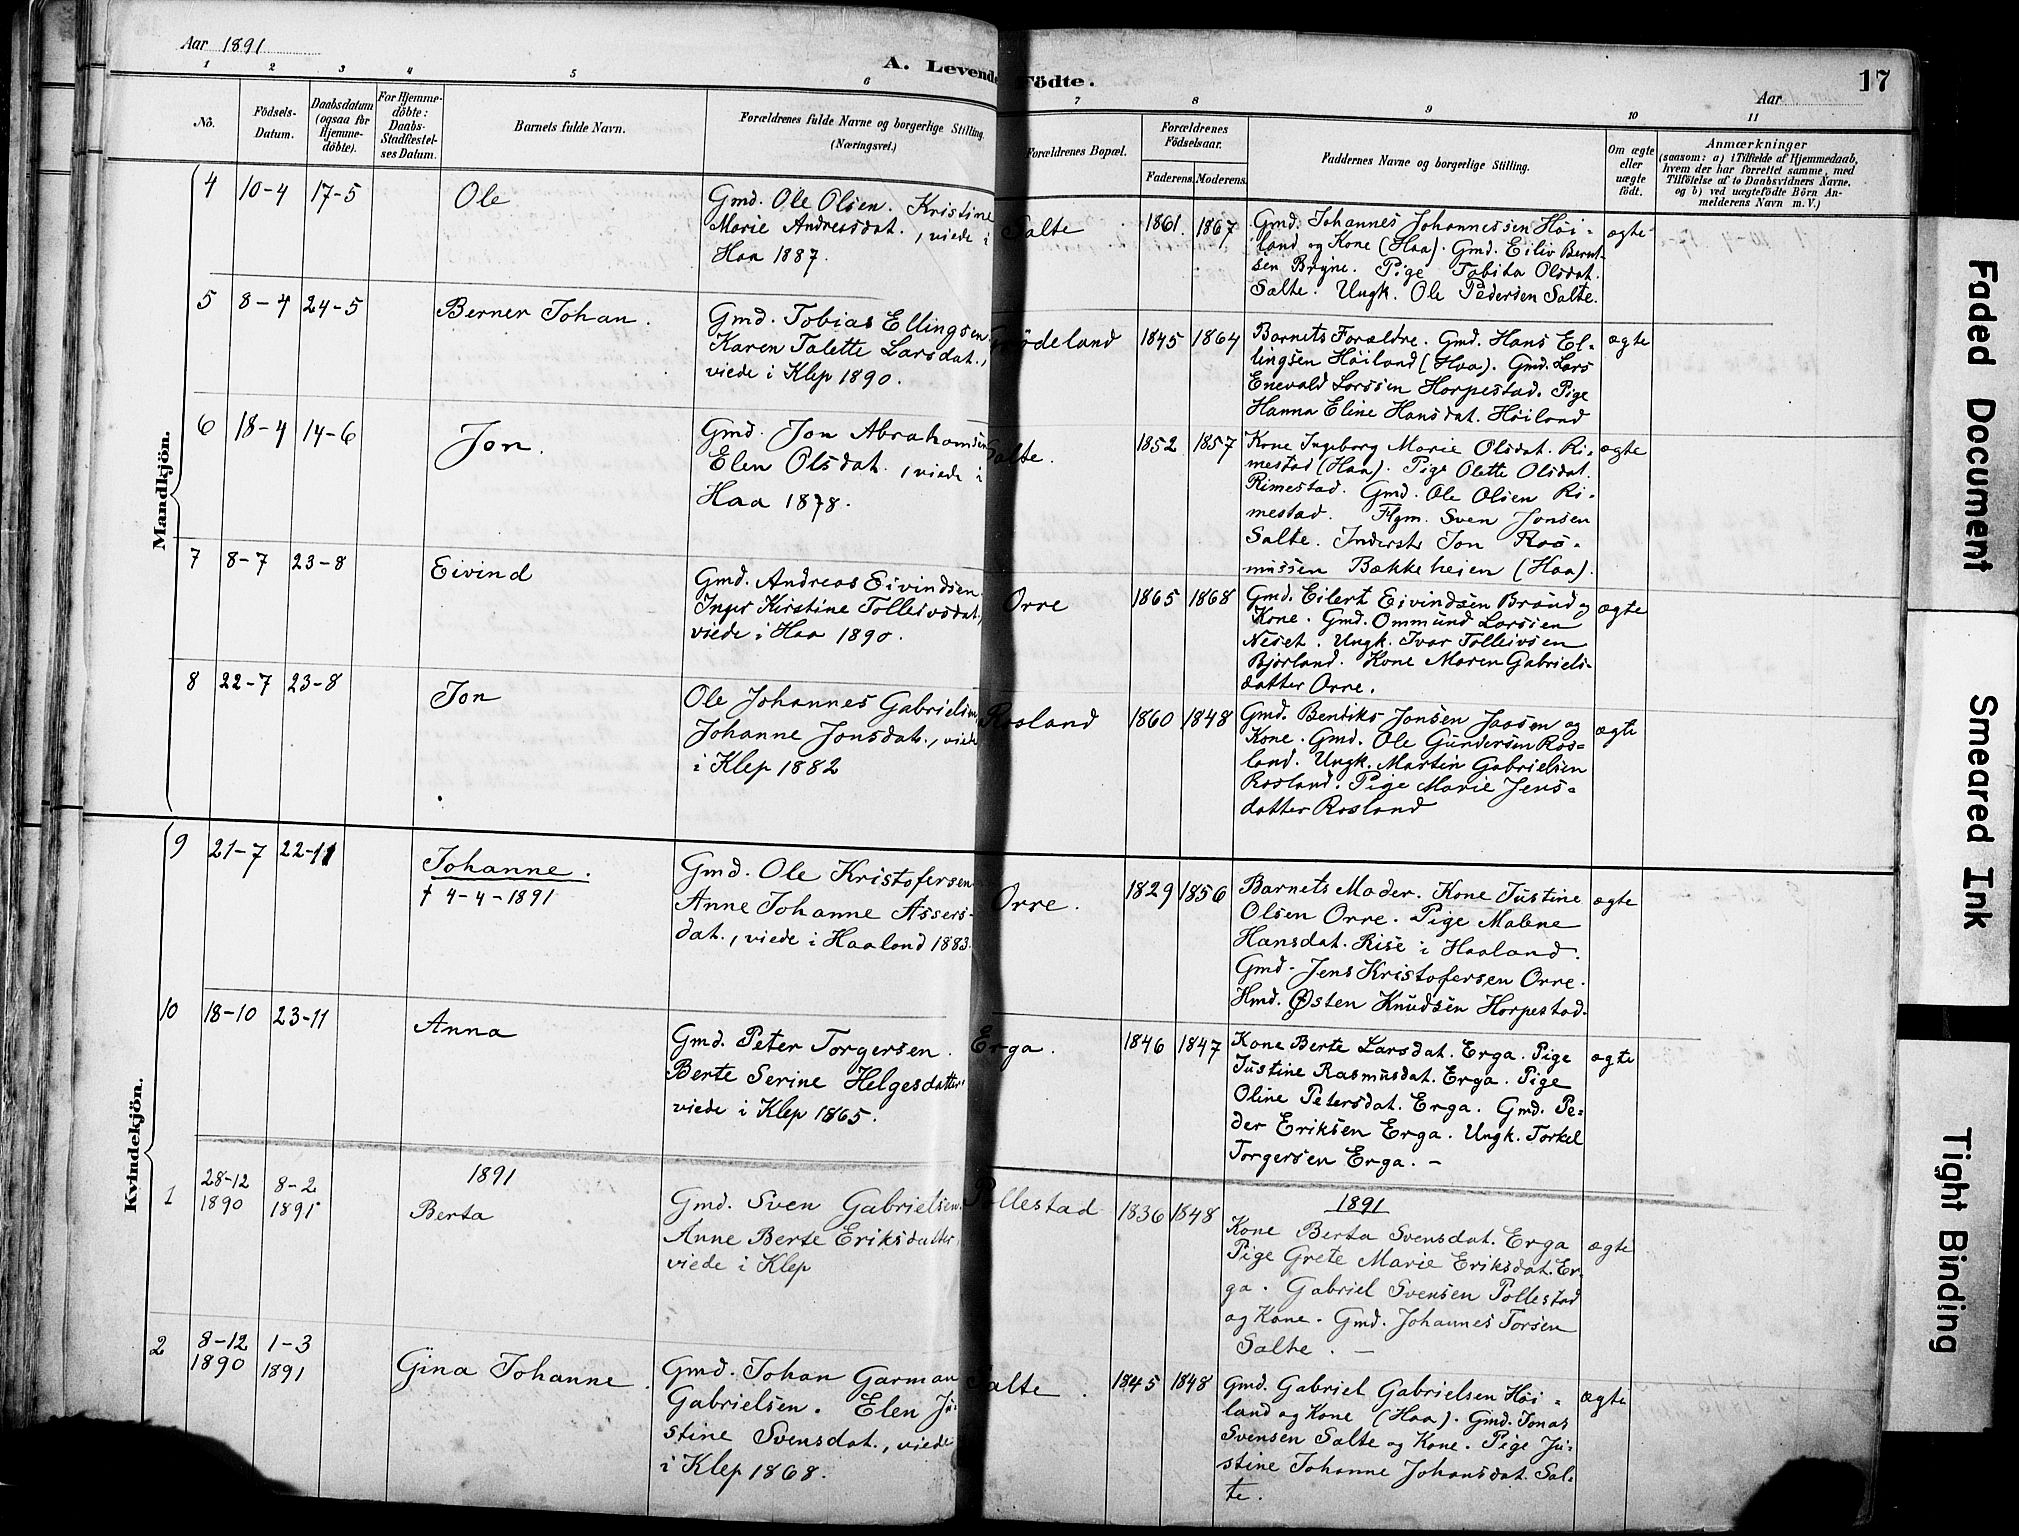 Aar 1891
A. Levende Födte.
Aar
17
1
2
3
4
5
6
7
8
9
10
11
No.
Födsels-
Datum.
Daabsdatum
(ogsaa for
Hjemme-
döbte).
For Hjemme-
döbte:
Daabs-
Stadfæstel-
ses Datum.
Barnets fulde Navn.
Forældrenes fulde Navne og borgerlige Stilling.
(Næringsvei.)
Forældrenes Bopæl.
Forældrenes
Födselsaar.
Faderens.
Moderens.
Faddernes Navne og borgerlige Stilling.
Om ægte
eller
uægte
födt.
Anmærkninger
(saasom: a) i Tilfælde af Hjemmedaab,
hvem der har forrettet samme, med
Tilföielse af to Daabsvidners Navne,
og b) ved uægtefödte Börn An-
melderens Navn m. V.)
Mandkjön.
4
10-4
17-5
Ole
Gmd. Ole Olsen. Kristine
Marie Andreasdat., viede i
Haa 1887.
Salte
1861.
1867
Gmd. Johannes Johannessen Höi-
land og Kone (Haa). Gmd. Eiliv Bernt-
sen Bryne. Pige Tobita Olsdat.
Salte. Ungk. Ole Pedersen Salte.
ægte
5
8-4
24-5
Berner Johan.
Gmd. Tobias Ellingsen
Karen Talette Larsdat.,
viede i Klep 1890.
1845
1864
Barnets Forældre. Gmd. Hans El-
lingsen Höiland (Haa). Gmd. Lars
Enevald Larssen Horpestad. Pige
Hanna Eline Hansdat. Höiland
ægte
6
18-4
14-6
Jon.
Gmd. Jon Abrahamsen
Elen Olsdat., viede i
Haa 1878.
Salte.
1852
1857
Kone Ingeborg Marie Olsdat. Ri-
mestad (Haa). Pige Olette Olsdat.
Rimestad. Gmd. Ole Olsen Ri-
mestad. Flgm. Sven Jonsen
Salte. Inderst Jon Ras-
mussen Bækkeheien (Haa).
ægte
7
8-7
23-8
Eivind
Gmd. Andreas Eivindsen
Inger Kirstine Tolleivsdat.,
viede i Haa 1890.
Orre
1865
1868
Gmd. Eilert Eivindsen Brand og
Kone. Gmd. Ommund Larssen
Neset. Ungk. Ivar Tolleivsen
Bjorland. Kone Maren Gabriels-
datter Orre.
ægte
8
22-7
23-8
Jon
Ole Johannes Gabrielsen
Johanne Jonsdat., viede
i Klep 1882
Rosland
1860
1848
Gmd. Bendiks Jonsen Jaasen og
Kone. Gmd. Ole Gundersen Ros-
land. Ungk. Martin Gabrielsen
Rosland. Pige Marie Jens-
datter Rosland
ægte
Kvindekjön.
9
21-7
22-11
Johanne.
† 4-4-1891
Gmd. Ole Kristofersen
Anne Johanne Assers-
dat., viede i Haaland 1883.
Orre.
1829
1856
Barnets Moder. Kone Justine
Olsen Orre. Pige Malene
Hansdat. Rise i Haaland.
Gmd. Jens Kristofersen Orre.
Hmd. Østen Knudsen Horpestad.
ægte
10
18-10
23-11
Anna
Gmd. Peter Torgersen.
Berte Serine Helgesdatter,
viede i Klep 1865.
Erga.
1846
1847
Kone Berte Larsdat. Erga. Pige
Justine Rasmusdat. Erga. Pige
Oline Petersdat. Erga. Gmd. Pe-
der Eriksen Erga. Ungk. Torkel
Torgersen Erga. -
ægte
1891
1891
1
28-12
1890
8-2
1891
Berta
Gmd. Sven Gabrielsen.
Anne Berte Eriksdatter,
viede i Klep
Pollestad
1836
1848
Kone Berta Svensdat. Erga
Pige Grete Marie Eriksdat. Er-
ga. Gabriel Svensen Pollestad
og Kone. Gmd. Johannes Torsen
Salte. -
ægte
2
8-12
1890
1-3
1891
Gina Johanne.
Gmd. Johan Garman
Gabrielsen. Elen Ju-
stine Svensdat., viede
i Klep 1868.
Salte.
1845
1848
Gmd. Gabriel Gabrielsen Höi-
land og Kone (Haa). Gmd. Jonas
Svensen Salte og Kone. Pige Ju-
stine Johanne Johansdat. Sal-
te.
ægte
Faded Document
Smeared Ink
Tight Binding